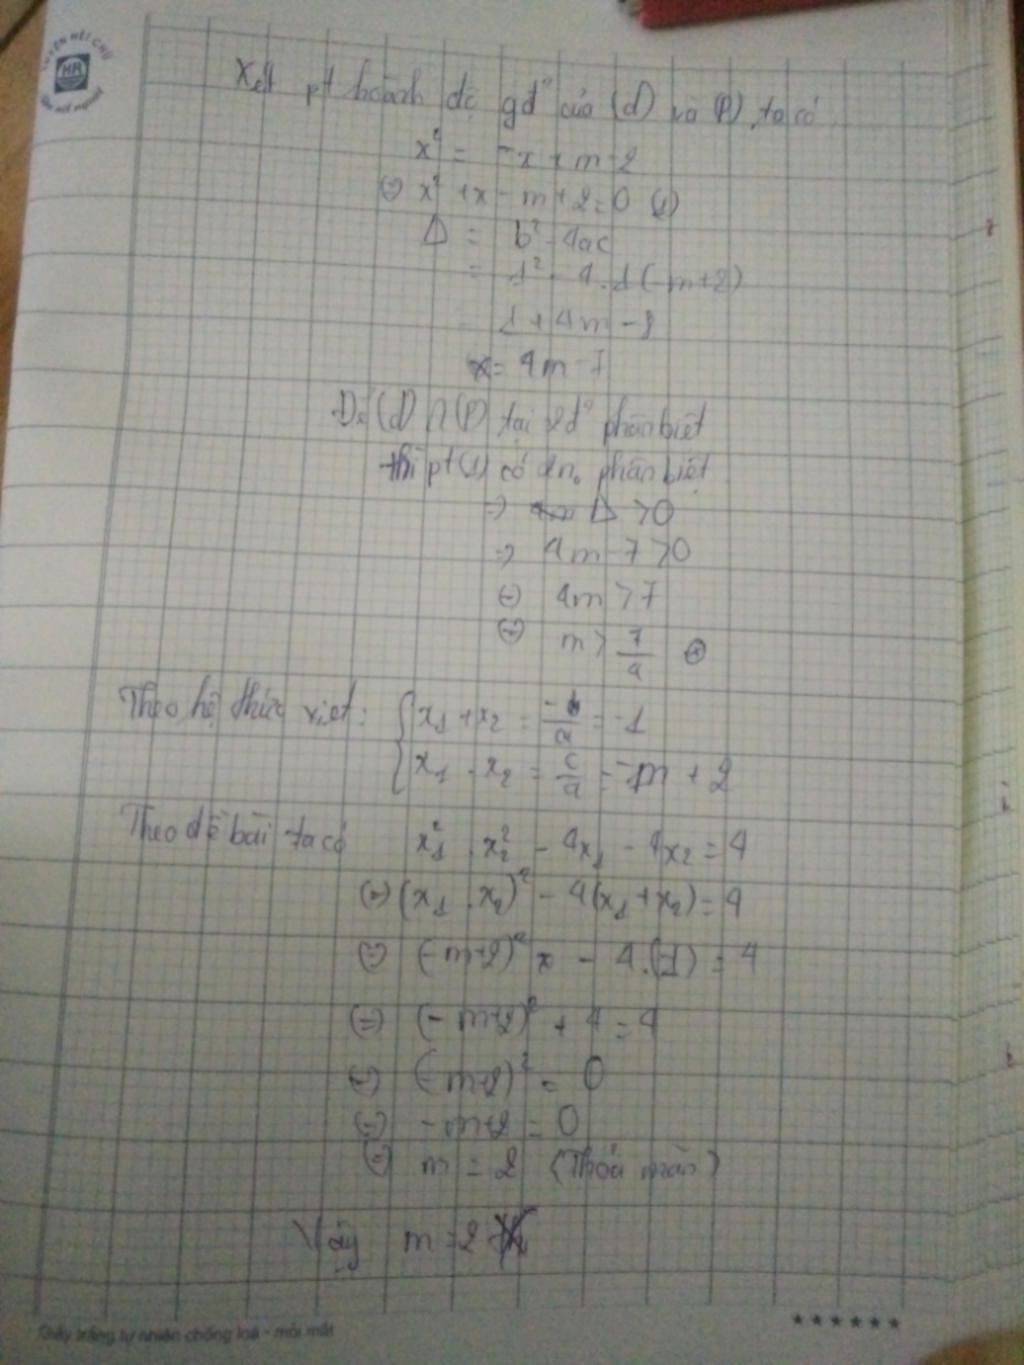 HR
Xét pt hoành độ gđ° của (d) và (P), ta có
x² = -x + m - 2
⇔ x² + x - m + 2 = 0 (1)
Δ = b² - 4ac
= 1² - 4.1(-m+2)
= 1 + 4m - 8
= 4m - 7
Để (d) ∩ (P) tại 2đ° phân biệt
thì pt(1) có 2n₀ phân biệt
⇒ Δ > 0
⇒ 4m - 7 > 0
⇔ 4m > 7
⇔ m > 7/4
Theo hệ thức viet: { x₁ + x₂ = -b/a = -1
x₁ . x₂ = c/a = -m + 2
Theo đề bài ta có x₁² . x₂² - 4x₁ - 4x₂ = 4
⇔ (x₁ . x₂)² - 4(x₁ + x₂) = 4
⇔ (-m+2)² - 4.(-1) = 4
⇔ (-m+2)² + 4 = 4
⇔ (-m+2)² = 0
⇔ -m+2 = 0
⇔ m = 2 (Thỏa mãn)
Vậy m = 2
Giấy trắng tự nhiên chống loá - mỏi mắt